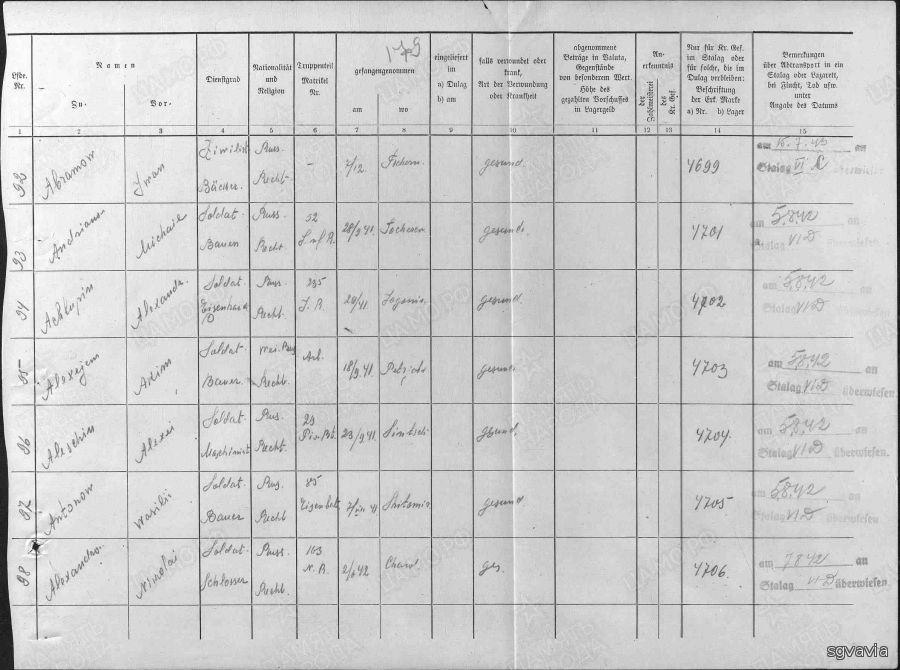 179
Lfde. Nr.
Namen
Zu-
Vor-
Dienstgrad
Nationalität und Religion
Truppenteil Matrikel Nr.
gefangengenommen
am
wo
eingeliefert im
a) Dulag
b) am
falls verwundet oder krank,
Art der Verwundung oder Krankheit
abgenommene Beträge in Valuta, Gegenstände von besonderem Wert. Höhe des gezahlten Vorschusses in Lagergeld
An-erkenntnis
der Zahlmeisterei
des Kr. Gef.
Nur für Kr. Gef. im Stalag oder für solche, die im Dulag verbleiben: Beschriftung der Erk. Marke
a) Nr. b) Lager
Bemerkungen über Abtransport in ein Stalag oder Lazarett, bei Flucht, Tod usw. unter Angabe des Datums
1 2 3 4 5 6 7 8 9 10 11 12 13 14 15
92 Abramow Iwan Zivilist Russ. – 7/12 gesund 4699 am 15.7.43 an
Recht. Stalag VI C überwiesen
93 Michail Soldat Russ. 52 28/9.41 gesund. 4701 am 5.8.42 an
Bauer Recht Stalag VI D überwiesen
94 Achlupin Alexandr. Soldat Russ. 235 gesund. 4702 am 5.8.42 an
Recht. I. R. Stalag VI D überwiesen
95 Akim Soldat Art. 18/9.41. gesund. 4703 am 5.8.42 an
Bauer Recht. Stalag VI D überwiesen.
96 Aleschin Alexei Soldat Russ. 23 23/9 41 gesund. 4704. am 5.8.42 an
Maschinist Recht. Stalag VI D überwiesen.
97 Antonow Wasilii Soldat. Russ. 85 gesund 4705 am 5.8.42 an
Bauer Recht Stalag VI D überwiesen.
98 Nikolai Soldat Russ. 163 ges. 4706. am 7.8.42 an
Schlosser Recht. Stalag VI D überwiesen.
ПАМЯТЬ НАРОДА
ЦАМО РФ
sgvavia